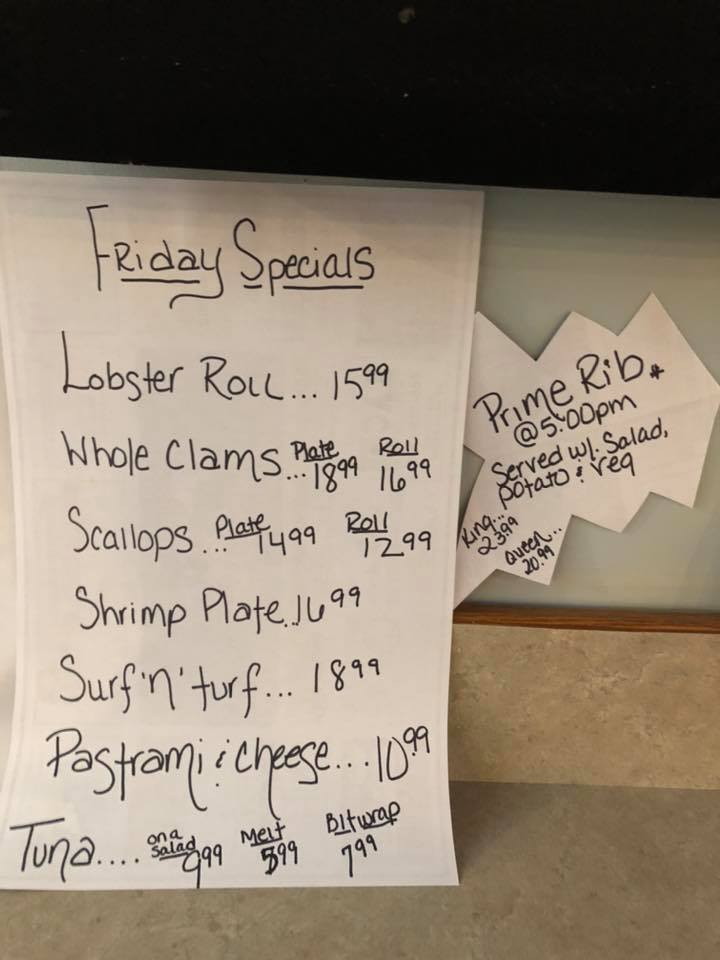 Friday Specials
Lobster Roll... 15⁹⁹
Whole Clams... Plate 18⁹⁹ Roll 16⁹⁹
Scallops... Plate 14⁹⁹ Roll 12⁹⁹
Shrimp Plate...16⁹⁹
Surf 'n' turf... 18⁹⁹
Pastrami & cheese...10⁹⁹
Tuna.... on a salad 9⁹⁹ Melt 5⁹⁹ Blt wrap 7⁹⁹
Prime Rib*
@5:00pm
Served w/. Salad,
potato & veg
King... 23.99
Queen... 20.99